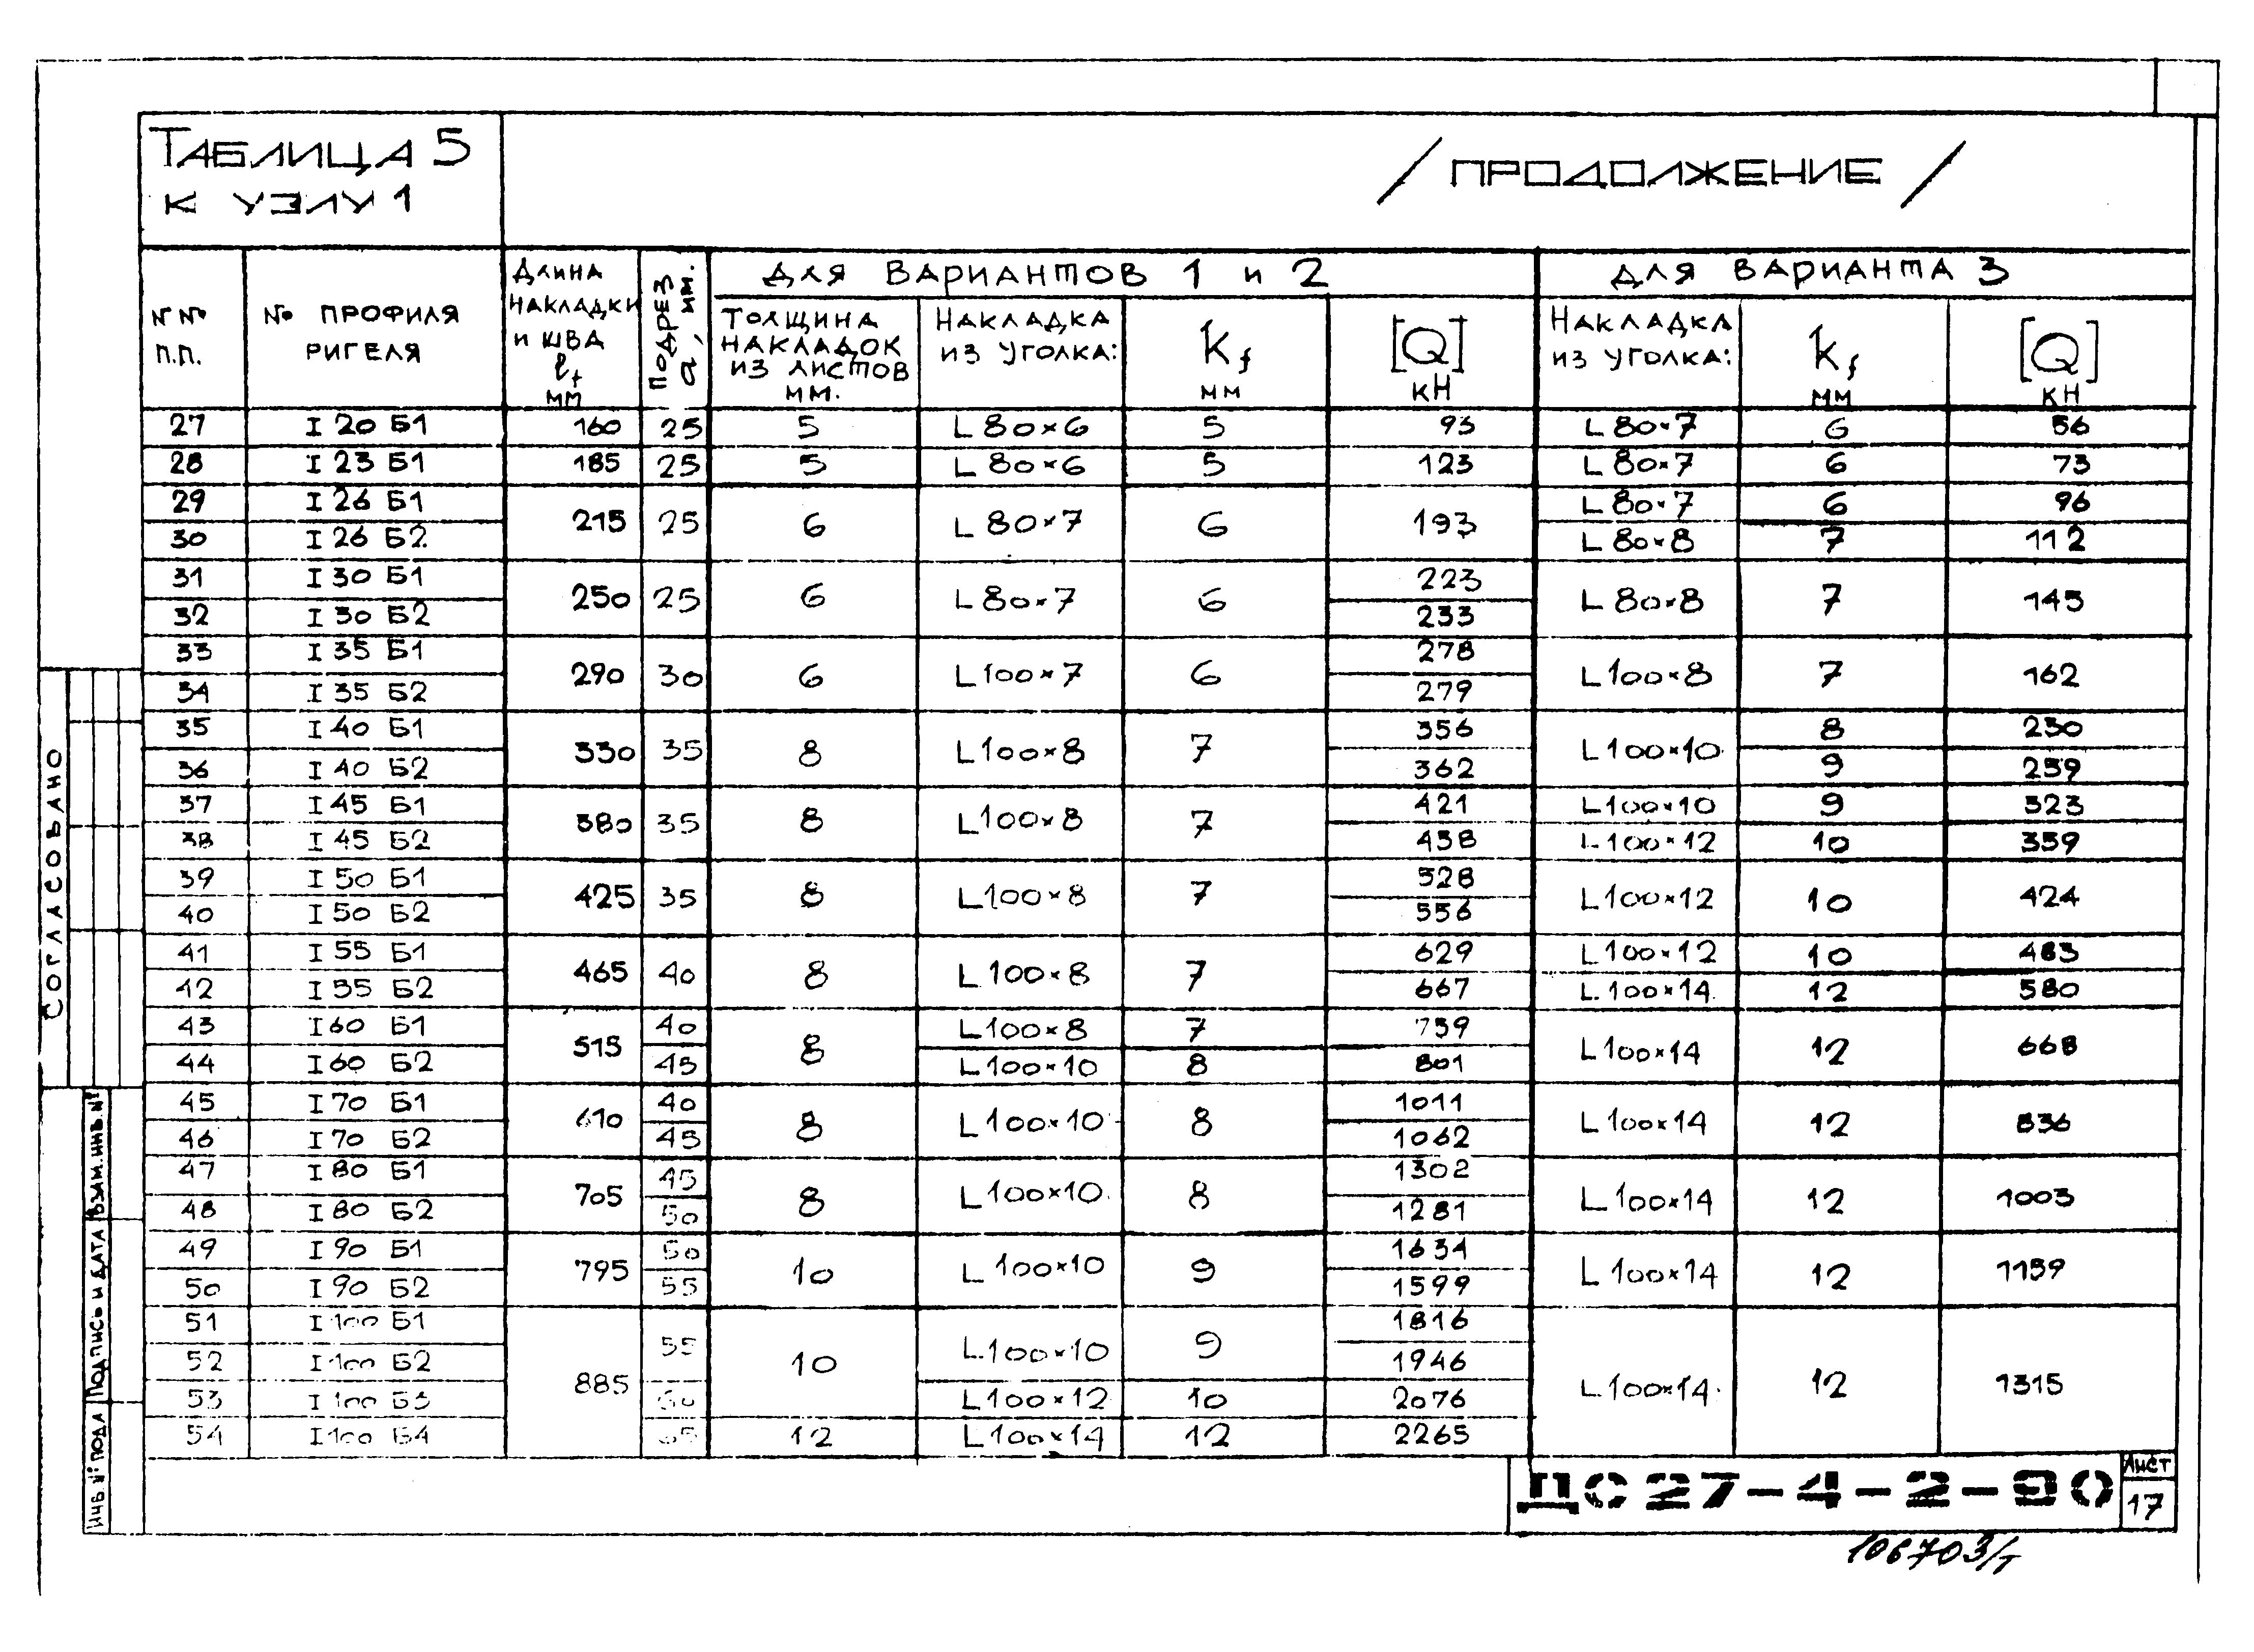 ТАБЛИЦА 5
К УЗЛУ 1
/ ПРОДОЛЖЕНИЕ /
№№ П.П.
№ ПРОФИЛЯ РИГЕЛЯ
ДЛИНА НАКЛАДКИ И ШВА ℓf ММ
ПОДРЕЗ a, ММ.
ДЛЯ ВАРИАНТОВ 1 И 2
ТОЛЩИНА НАКЛАДОК ИЗ ЛИСТОВ ММ.
НАКЛАДКА ИЗ УГОЛКА:
kf ММ
[Q] КН
ДЛЯ ВАРИАНТА 3
НАКЛАДКА ИЗ УГОЛКА:
kf ММ
[Q] КН
27 I 20 Б1 160 25 5 L 80×6 5 93 L 80×7 6 56
28 I 23 Б1 185 25 5 L 80×6 5 123 L 80×7 6 73
29 I 26 Б1 215 25 6 L 80×7 6 193 L 80×7 6 96
30 I 26 Б2 L 80×8 7 112
31 I 30 Б1 250 25 6 L 80×7 6 223 L 80×8 7 145
32 I 30 Б2 233
33 I 35 Б1 290 30 6 L 100×7 6 278 L 100×8 7 162
34 I 35 Б2 279
35 I 40 Б1 330 35 8 L 100×8 7 356 L 100×10 8 230
36 I 40 Б2 362 9 259
37 I 45 Б1 380 35 8 L 100×8 7 421 L 100×10 9 323
38 I 45 Б2 438 L 100×12 10 359
39 I 50 Б1 425 35 8 L 100×8 7 528 L 100×12 10 424
40 I 50 Б2 556
41 I 55 Б1 465 40 8 L 100×8 7 629 L 100×12 10 483
42 I 55 Б2 667 L 100×14 12 580
43 I 60 Б1 515 40 8 L 100×8 7 759 L 100×14 12 668
44 I 60 Б2 45 L 100×10 8 801
45 I 70 Б1 610 40 8 L 100×10 8 1011 L 100×14 12 836
46 I 70 Б2 45 1062
47 I 80 Б1 705 45 8 L 100×10 8 1302 L 100×14 12 1003
48 I 80 Б2 50 1281
49 I 90 Б1 795 50 10 L 100×10 9 1634 L 100×14 12 1159
50 I 90 Б2 55 1599
51 I 100 Б1 885 55 10 L 100×10 9 1816 L 100×14 12 1315
52 I 100 Б2 1946
53 I 100 Б3 60 L 100×12 10 2076
54 I 100 Б4 65 12 L 100×14 12 2265
СОГЛАСОВАНО
ВЗАМ. ИНВ. №
ПОДПИСЬ И ДАТА
ИНВ. № ПОДЛ
ДС27-4-2-90
ЛИСТ
17
106703/т